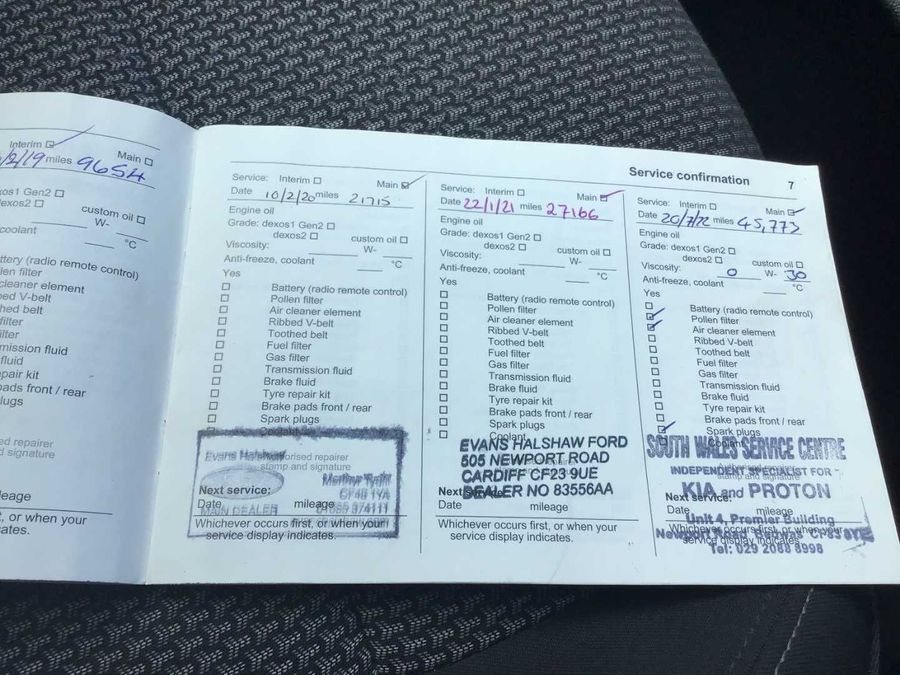 Interim
Main
/2/19 miles 9654
xos1 Gen2
exos2
custom oil
W-
coolant
°C
ttery (radio remote control)
llen filter
cleaner element
bed V-belt
thed belt
filter
ilter
mission fluid
fluid
pair kit
pads front / rear
lugs
ed repairer
d signature
leage
t, or when your
ates.
Service confirmation 7
Service: Interim Main
Date 10/2/20 miles 21715
Engine oil
Grade: dexos1 Gen2
dexos2 custom oil
Viscosity: W-
Anti-freeze, coolant °C
Yes
Battery (radio remote control)
Pollen filter
Air cleaner element
Ribbed V-belt
Toothed belt
Fuel filter
Gas filter
Transmission fluid
Brake fluid
Tyre repair kit
Brake pads front / rear
Spark plugs
Coolant
Evans Halshaw
Authorised repairer
stamp and signature
Merthyr Tydfil
CF48 1YA
MAIN DEALER
Next service:
Date mileage
Whichever occurs first, or when your
service display indicates.
Service: Interim Main
Date 22/1/21 miles 27166
Engine oil
Grade: dexos1 Gen2
dexos2 custom oil
Viscosity: W-
Anti-freeze, coolant °C
Yes
Battery (radio remote control)
Pollen filter
Air cleaner element
Ribbed V-belt
Toothed belt
Fuel filter
Gas filter
Transmission fluid
Brake fluid
Tyre repair kit
Brake pads front / rear
Spark plugs
Coolant
EVANS HALSHAW FORD
505 NEWPORT ROAD
CARDIFF CF23 9UE
DEALER NO 83556AA
Next service:
Date mileage
Whichever occurs first, or when your
service display indicates.
Service: Interim Main
Date 20/7/22 miles 45,773
Engine oil
Grade: dexos1 Gen2
dexos2 custom oil
Viscosity: 0 W- 30
Anti-freeze, coolant °C
Yes
Battery (radio remote control)
Pollen filter
Air cleaner element
Ribbed V-belt
Toothed belt
Fuel filter
Gas filter
Transmission fluid
Brake fluid
Tyre repair kit
Brake pads front / rear
Spark plugs
Coolant
SOUTH WALES SERVICE CENTRE
INDEPENDENT SPECIALIST FOR
stamp and signature
KIA and PROTON
Next service:
Date mileage
Unit 4, Premier Building
Whichever occurs first, or when your
Newport Road, Bedwas
service display indicates.
Tel: 029 2088 8998